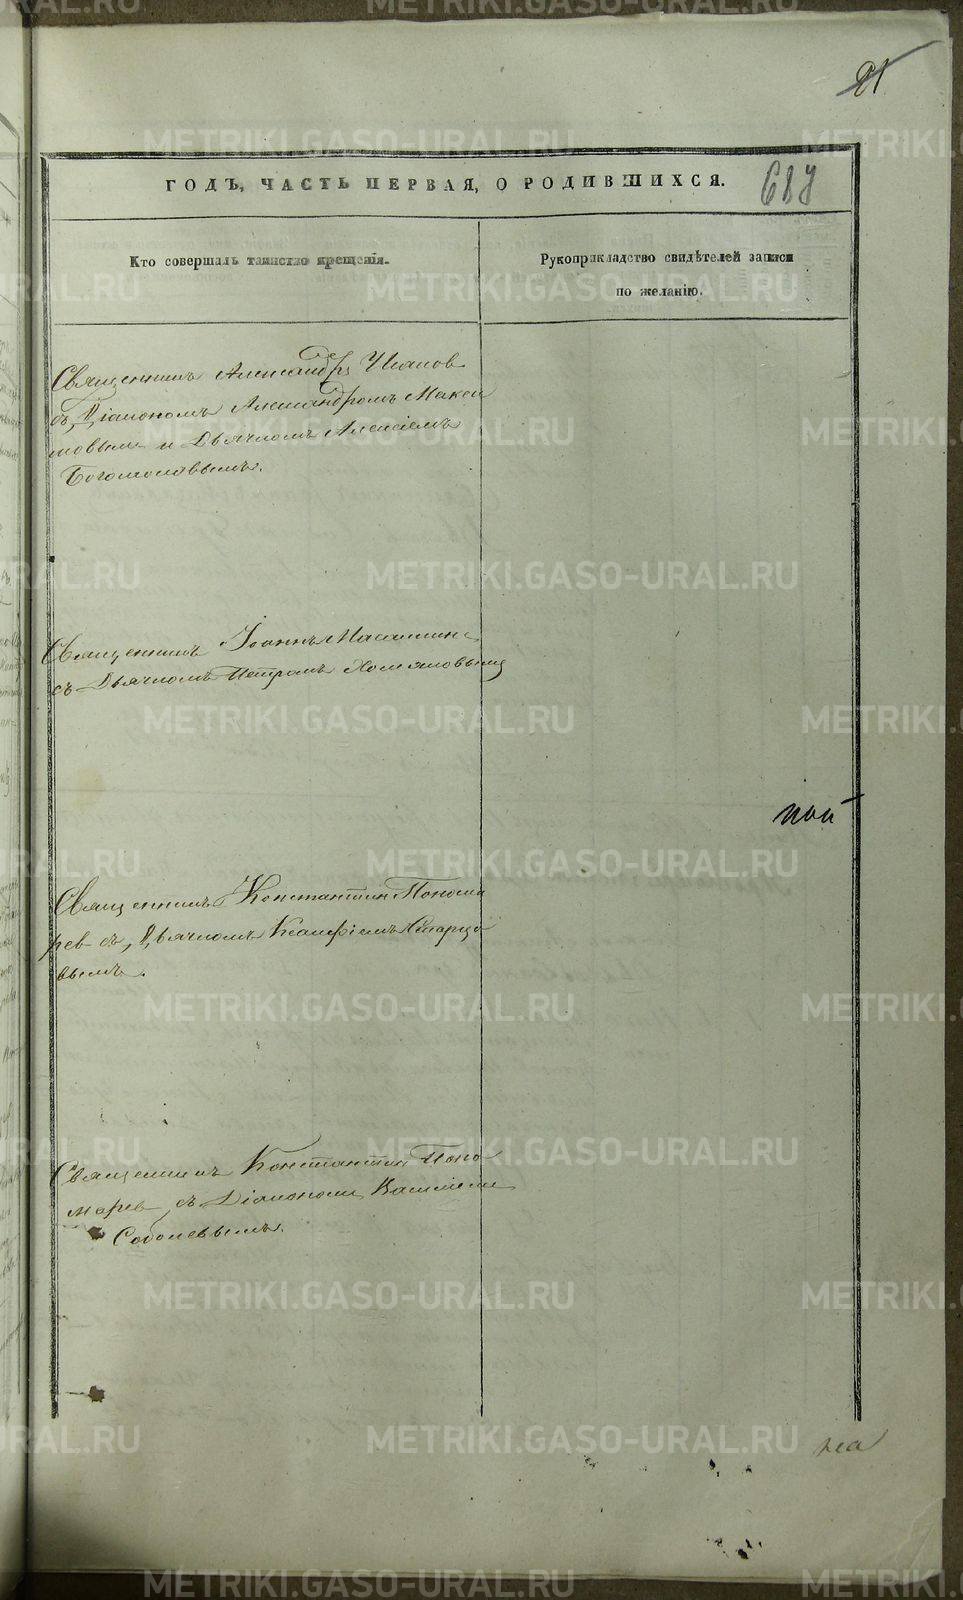 21
ГОДЪ, ЧАСТЬ ПЕРВАЯ, О РОДИВШИХСЯ.
Кто совершалъ таинство крещенія.
Рукоприкладство свидѣтелей записи
по желанію.
Священникъ Александръ
съ Діакономъ Александромъ Макси
мовымъ и Дьячкомъ Алексіемъ
Богомоловымъ.
Священникъ Іоаннъ
съ Дьячкомъ Петромъ Хомяковымъ
Священникъ Константин Понома
рев съ Дьячкомъ
вымъ.
Священникъ Константин Поно
марев съ Діакономъ Василіемъ
Соболевымъ.
ной
на
METRIKI.GASO-URAL.RU